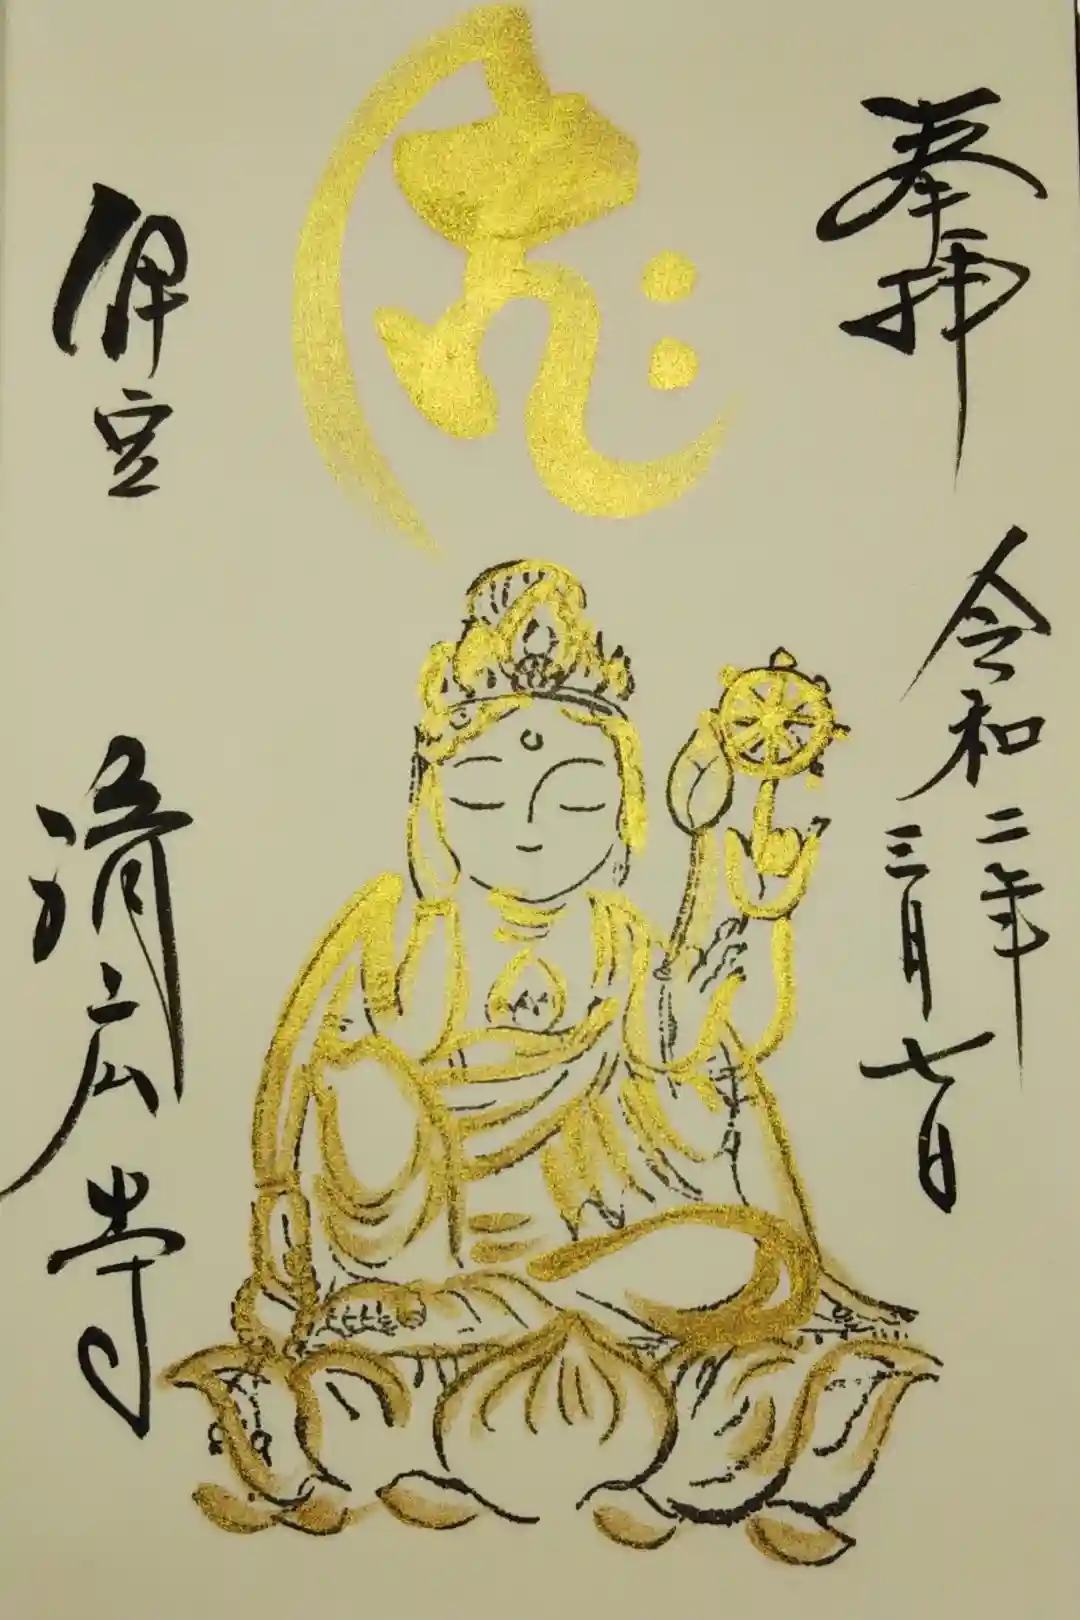 奉拝
令和二年
三月七日
𑖮𑖿𑖨𑖱𑖾
伊豆
済広寺